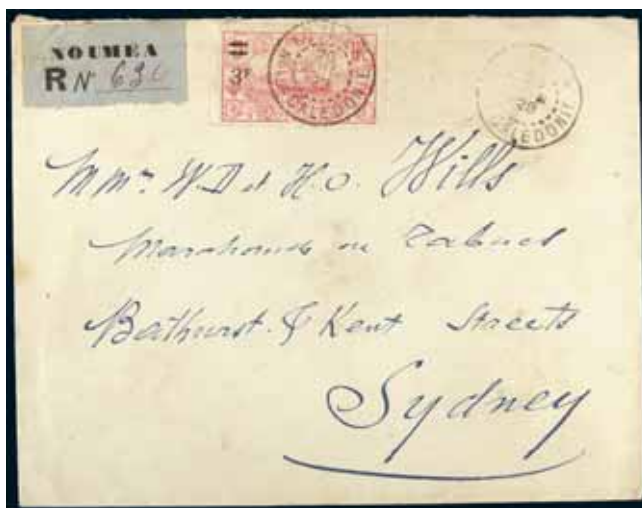 NOUMEA
R N° 630
3F
CALEDONIE
CALEDONIE
W.D et H.O. Wills
Marchands en Tabacs
Bathurst & Kent Streets
Sydney